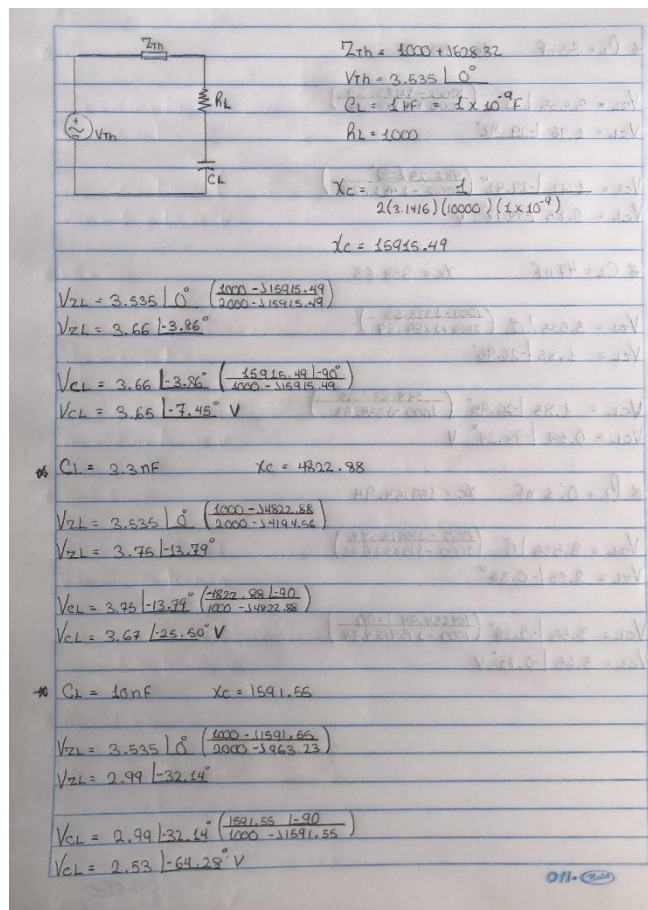 ZTh
RL
VTh
CL
ZTh = 1000 + J628.32
VTh = 3.535 ∠0°
CL = 1 nF = 1 x 10⁻⁹F
RL = 1000
Xc = 1 / 2(3.1416)(10000)(1x10⁻⁹)
Xc = 15915.49
VZL = 3.535 ∠0° (1000 - J15915.49 / 2000 - J15915.49)
VZL = 3.66 ∠-3.86°
VCL = 3.66 ∠-3.86° (15915.49 ∠-90° / 1000 - J15915.49)
VCL = 3.65 ∠-7.45° V
* CL = 3.3 nF Xc = 4822.88
VZL = 3.535 ∠0° (1000 - J4822.88 / 2000 - J4194.56)
VZL = 3.75 ∠-13.79°
VCL = 3.75 ∠-13.79° (4822.88 ∠-90 / 1000 - J4822.88)
VCL = 3.67 ∠-25.50° V
* CL = 10nF Xc = 1591.55
VZL = 3.535 ∠0° (1000 - J1591.55 / 2000 - J963.23)
VZL = 2.99 ∠-32.14°
VCL = 2.99 ∠-32.14° (1591.55 ∠-90 / 1000 - J1591.55)
VCL = 2.53 ∠-64.28° V